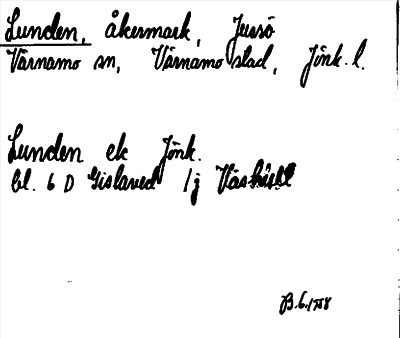 Lunden, åkermark, Jussö
Värnamo sn, Värnamo stad, Jönk. l.
Lunden ek Jönk.
bl. 6 D Gislaved 1j